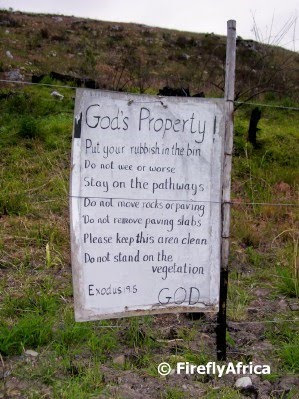 God's Property!
Put your rubbish in the bin
Do not wee or worse
Stay on the pathways
Do not move rocks or paving
Do not remove paving slabs
Please keep this area clean
Do not stand on the
vegetation
Exodus 19 5
GOD
© FireflyAfrica